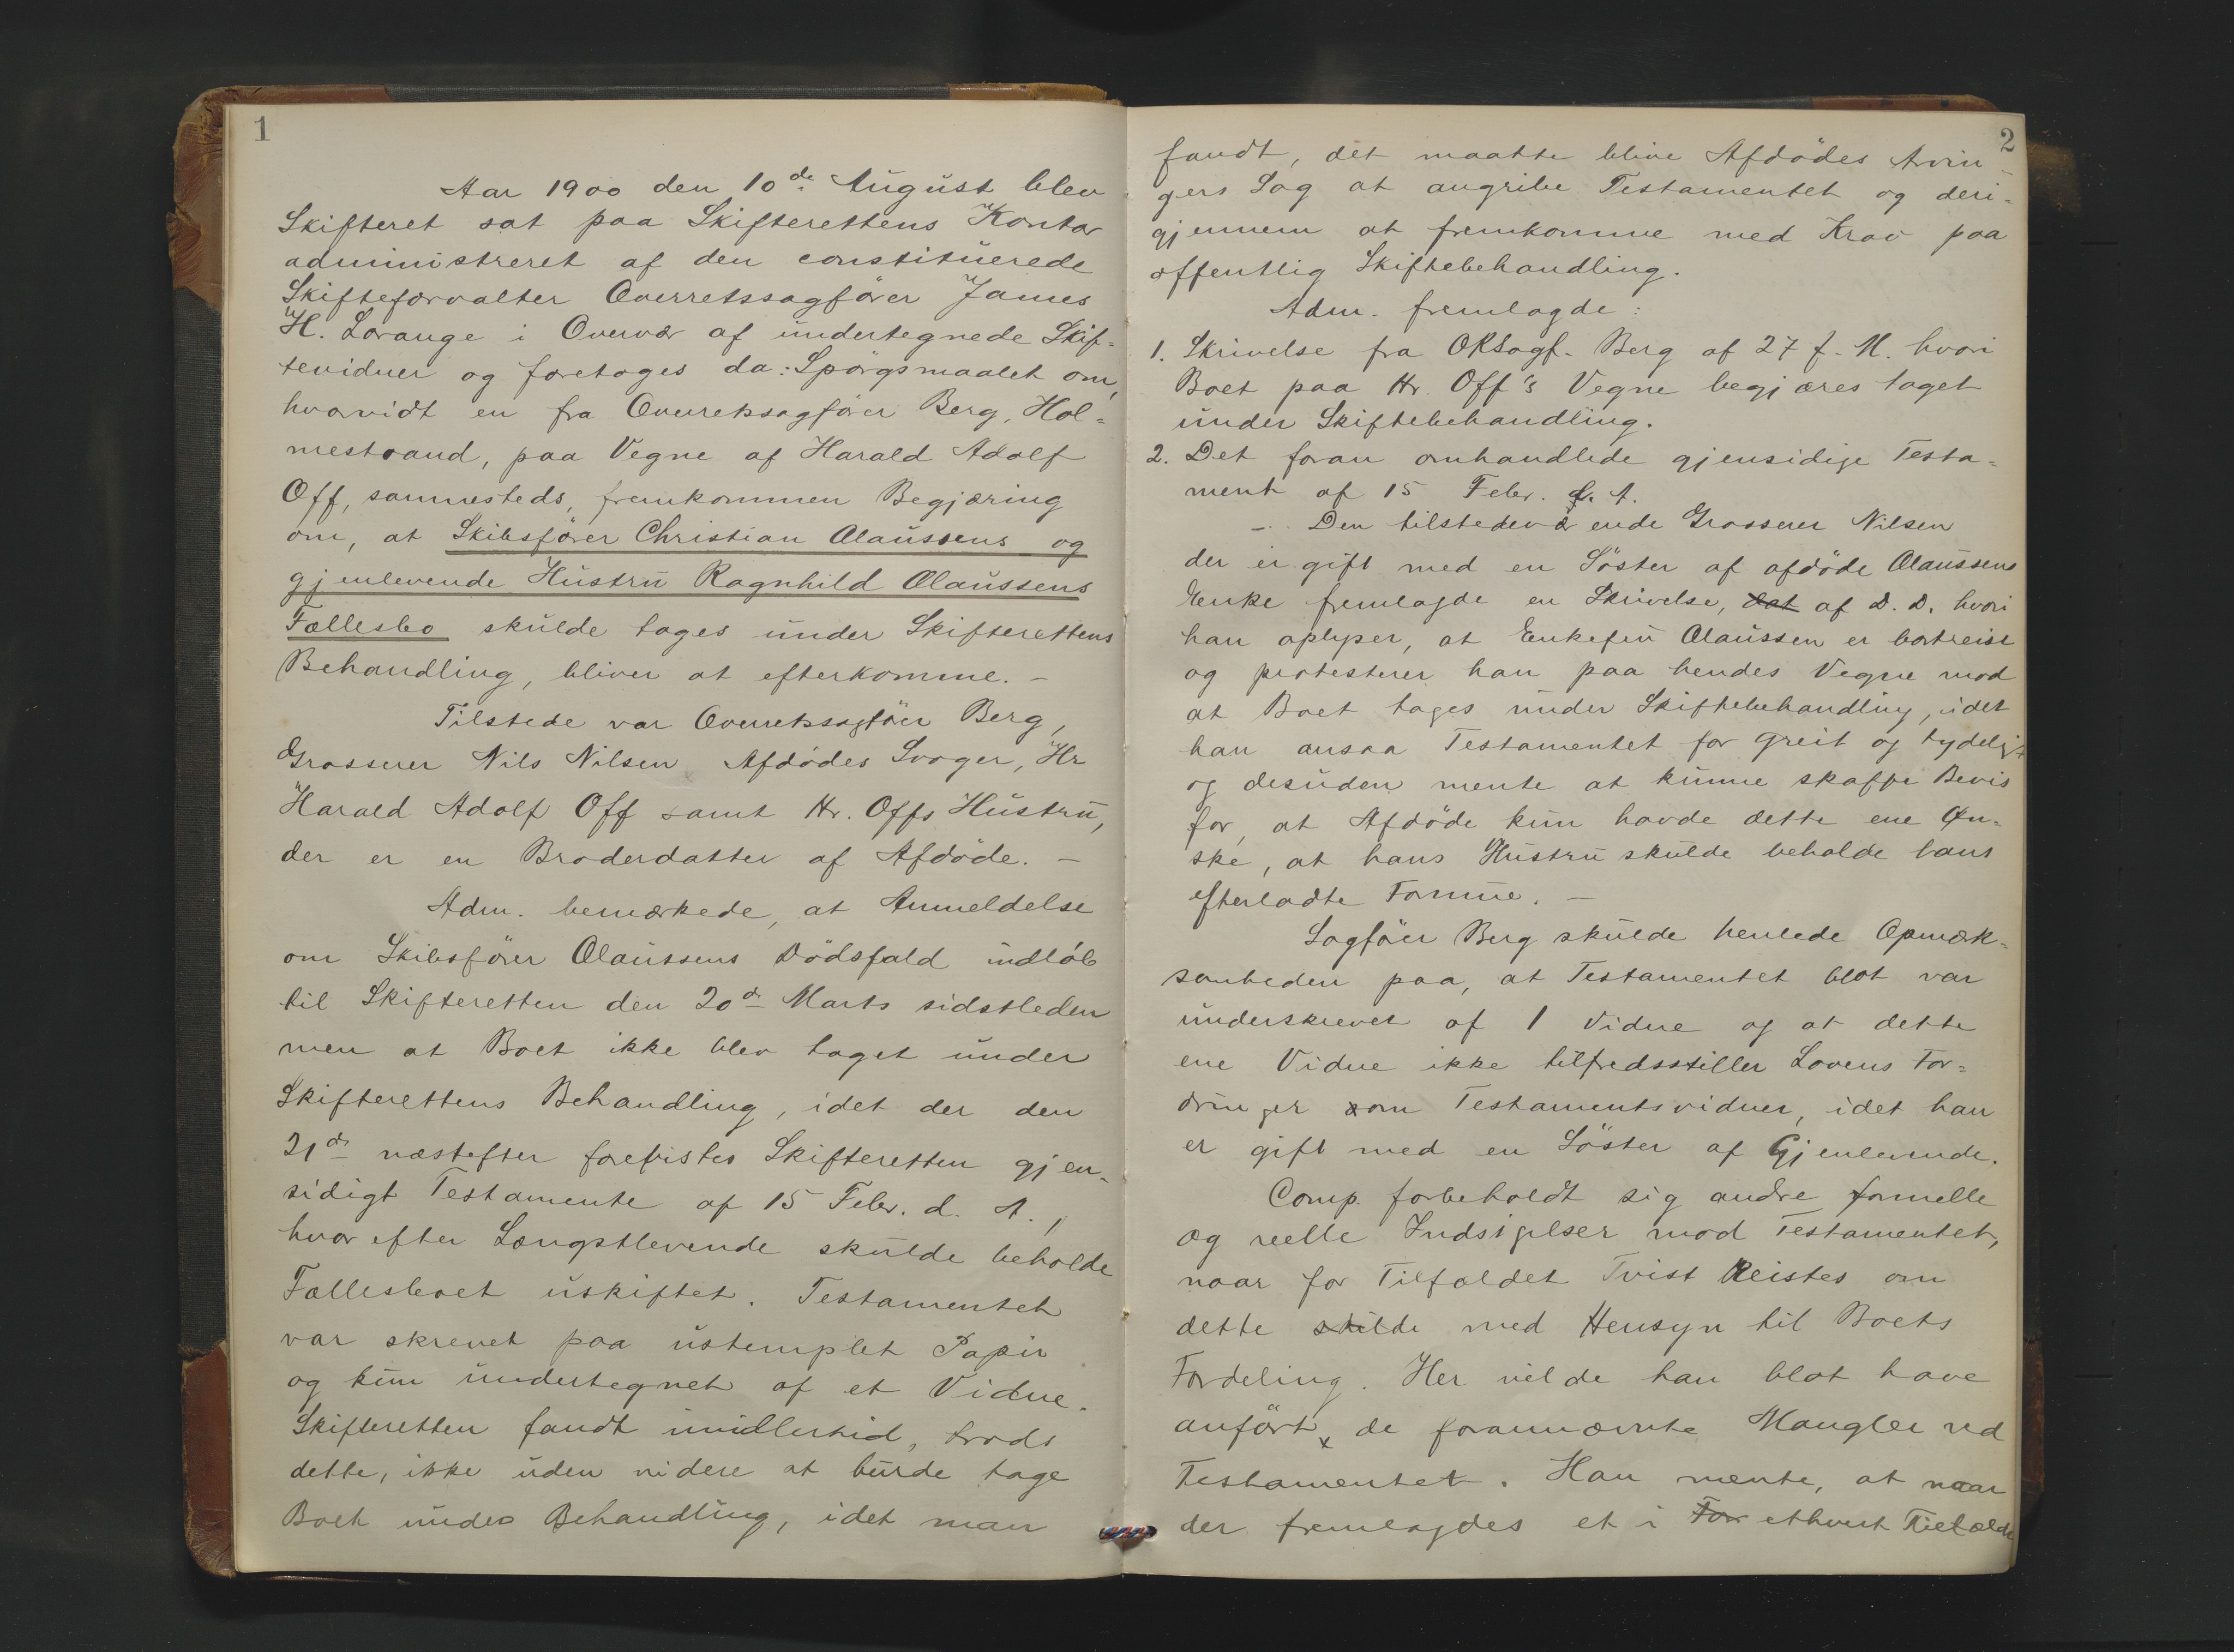 1
Aar 1900 den 10de August blev
Skifteret sat paa Skifterettens Kontor
administreret af den constituerede
Skifteforvalter Overretssagförer James
H. Lorange i Overvær af undertegnede Skif=
tevidner og foretoges da: Spörgsmaalet om,
hvorvidt en fra Overretssagförer Berg, Hol=
mestrand, paa Vegne af Harald Adolf
Off, sammesteds, fremkommen Begjæring
om, at Skibsförer Christian Olaussens og
gjenlevende Hustru Ragnhild Olaussens
Fællesbo skulde tages under Skifterettens
Behandling, bliver at efterkomme. –
Tilstede var Overretssagförer Berg,
Grosserer Nils Nilsen Afdödes Svoger, Hr
Harald Adolf Off samt Hr. Offs Hustru,
der er en Broderdatter af Afdöde. –
Adm. bemærkede, at Anmeldelse
om Skibsförer Olaussens Dödsfald indlöb
til Skifteretten den 20de Marts sidstleden
men at Boet ikke blev taget under
Skifterettens Behandling, idet der den
21de næstefter forevistes Skifteretten gjen-
sidigt Testamente af 15 Febr. d. A.,
hvorefter Længstlevende skulde beholde
Fællesboet uskiftet. Testamentet
var skrevet paa ustemplet Papir
og kun undertegnet af et Vidne.
Skifteretten fandt imidlertid, trods
dette, ikke uden videre at burde tage
Boet under Behandling, idet man
2
fandt, det maatte blive Afdödes Arvin=
gers Sag at angribe Testamentet og deri-
gjennem at fremkomme med Krav paa
offentlig Skiftebehandling.
Adm. fremlagde:
1. Skrivelse fra ORSagf. Berg af 27 f. M. hvori
Boet paa Hr. Off's Vegne begjæres taget
under Skiftebehandling.
2. Det foran omhandlede gjensidige Testa=
ment af 15 Febr. d. A.
– Den tilstedeværende Grosserer Nilsen
der er gift med en Söster af afdöde Olaussens
Enke fremlagde en Skrivelse, dat af D. D. hvori
han oplyser, at Enkefru Olaussen er bortreist
og protesterer han paa hendes Vegne mod
at Boet tages under Skiftebehandling, idet
han ansaa Testamentet for greit og tydeligt
og desuden mente at kunne skaffe Bevis
for, at Afdöde kun havde dette ene Øn=
ske, at hans Hustru skulde beholde hans
efterladte Formue. –
Sagförer Berg skulde henlede Opmærk=
somheden paa, at Testamentet blot var
underskrevet af 1 Vidne og at dette
ene Vidne ikke tilfredsstiller Lovens For=
dringer som Testamentsvidner, idet han
er gift med en Söster af Gjenlevende.
Comp. forbeholdt sig andre formelle
og reelle Indsigelser mod Testamentet,
naar for Tilfældet Tvist Reistes om
dette skulde med Hensyn til Boets
Fordeling. Her vilde han blot have
anfört de forannævnte Mangler ved
Testamentet. Han mente, at naar
der fremlagdes et i For ethvert Tilfælde